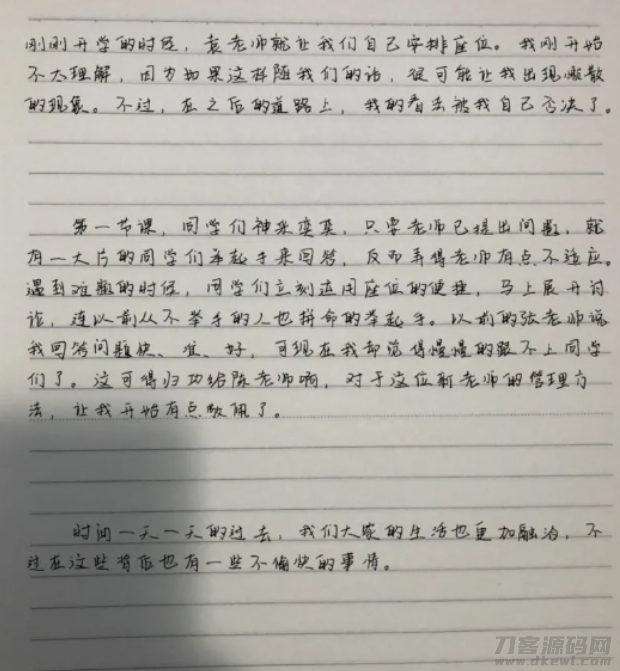 刚刚开学的时候，袁老师就让我们自己安排座位。我刚开始
不太理解，因为如果这样随我们的话，很可能让我出现嗷散
的现象。不过，在之后的道路上，我的看法被我自己否决了。
第一节课，同学们神采奕奕，只要老师已提出问题，就
有一大片的同学们举起手来回答，反而弄得老师有点不适应。
遇到难题的时候，同学们立刻运用座位的便捷，马上展开讨
论，连以前从不举手的人也拼命的举起手。以前的张老师说
我回答问题快、准、好，可现在我却觉得慢慢的跟不上同学
们了。这可得归功给陈老师啊，对于这位新老师的管理方
法，让我开始有点敬佩了。
时间一天一天的过去，我们大家的生活也更加融洽，不
过在这些背后也有一些不愉快的事情。
刀客源码网
www.dkewl.com